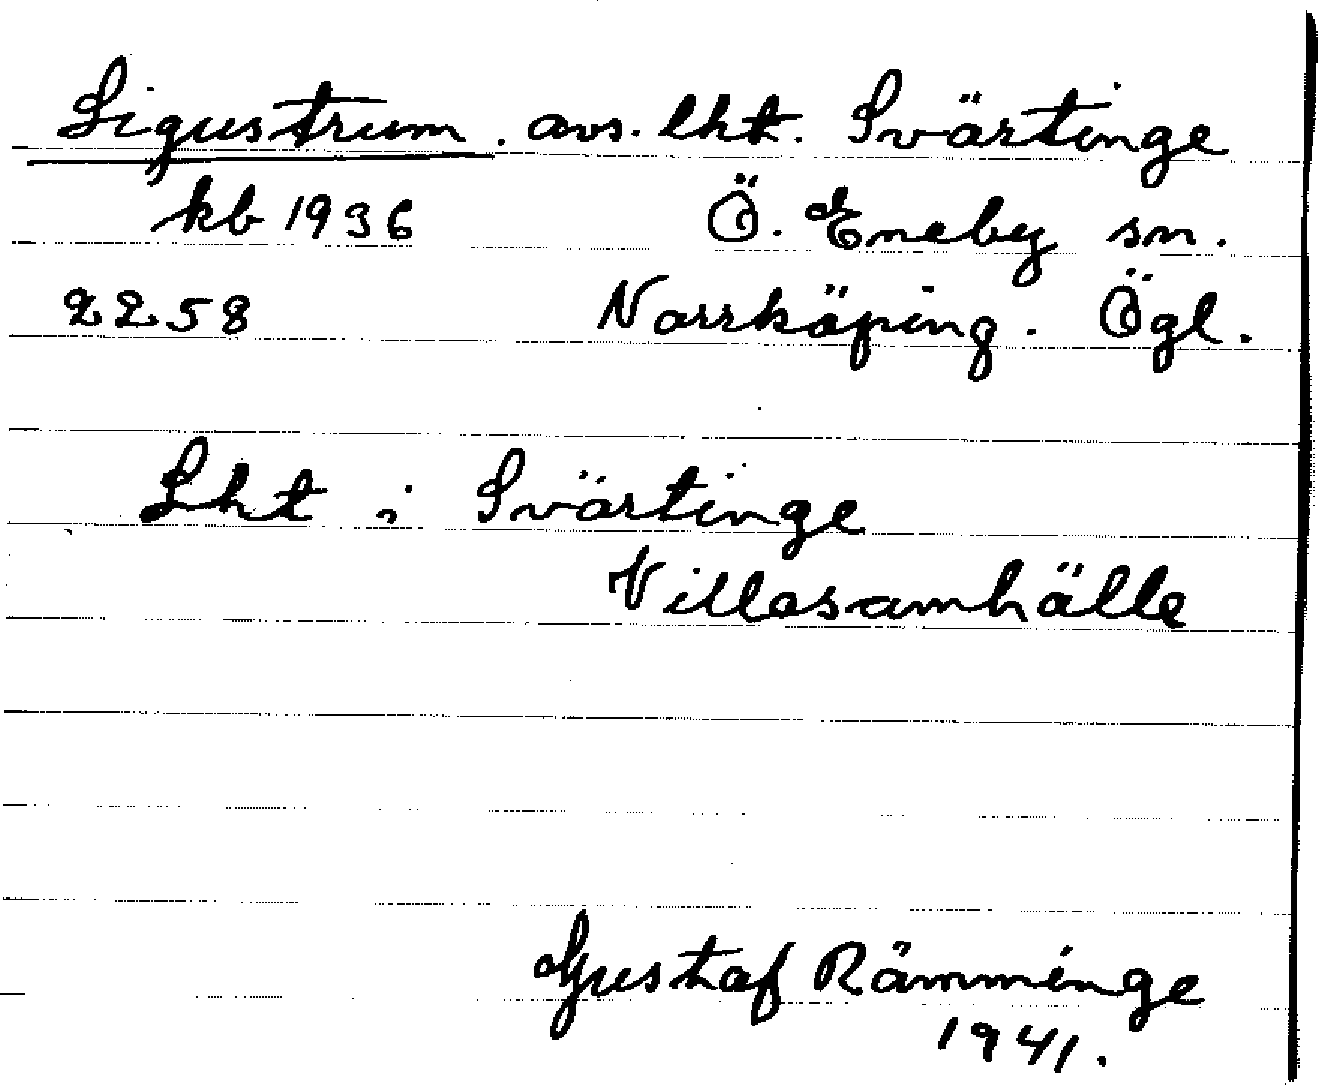 Ligustrum. avs. lht. Svärtinge
kb 1936 Ö. Eneby sn.
2258 Norrköping. Ögl.
Lht i Svärtinge
Villasamhälle
Gustaf Rämminge
1941.